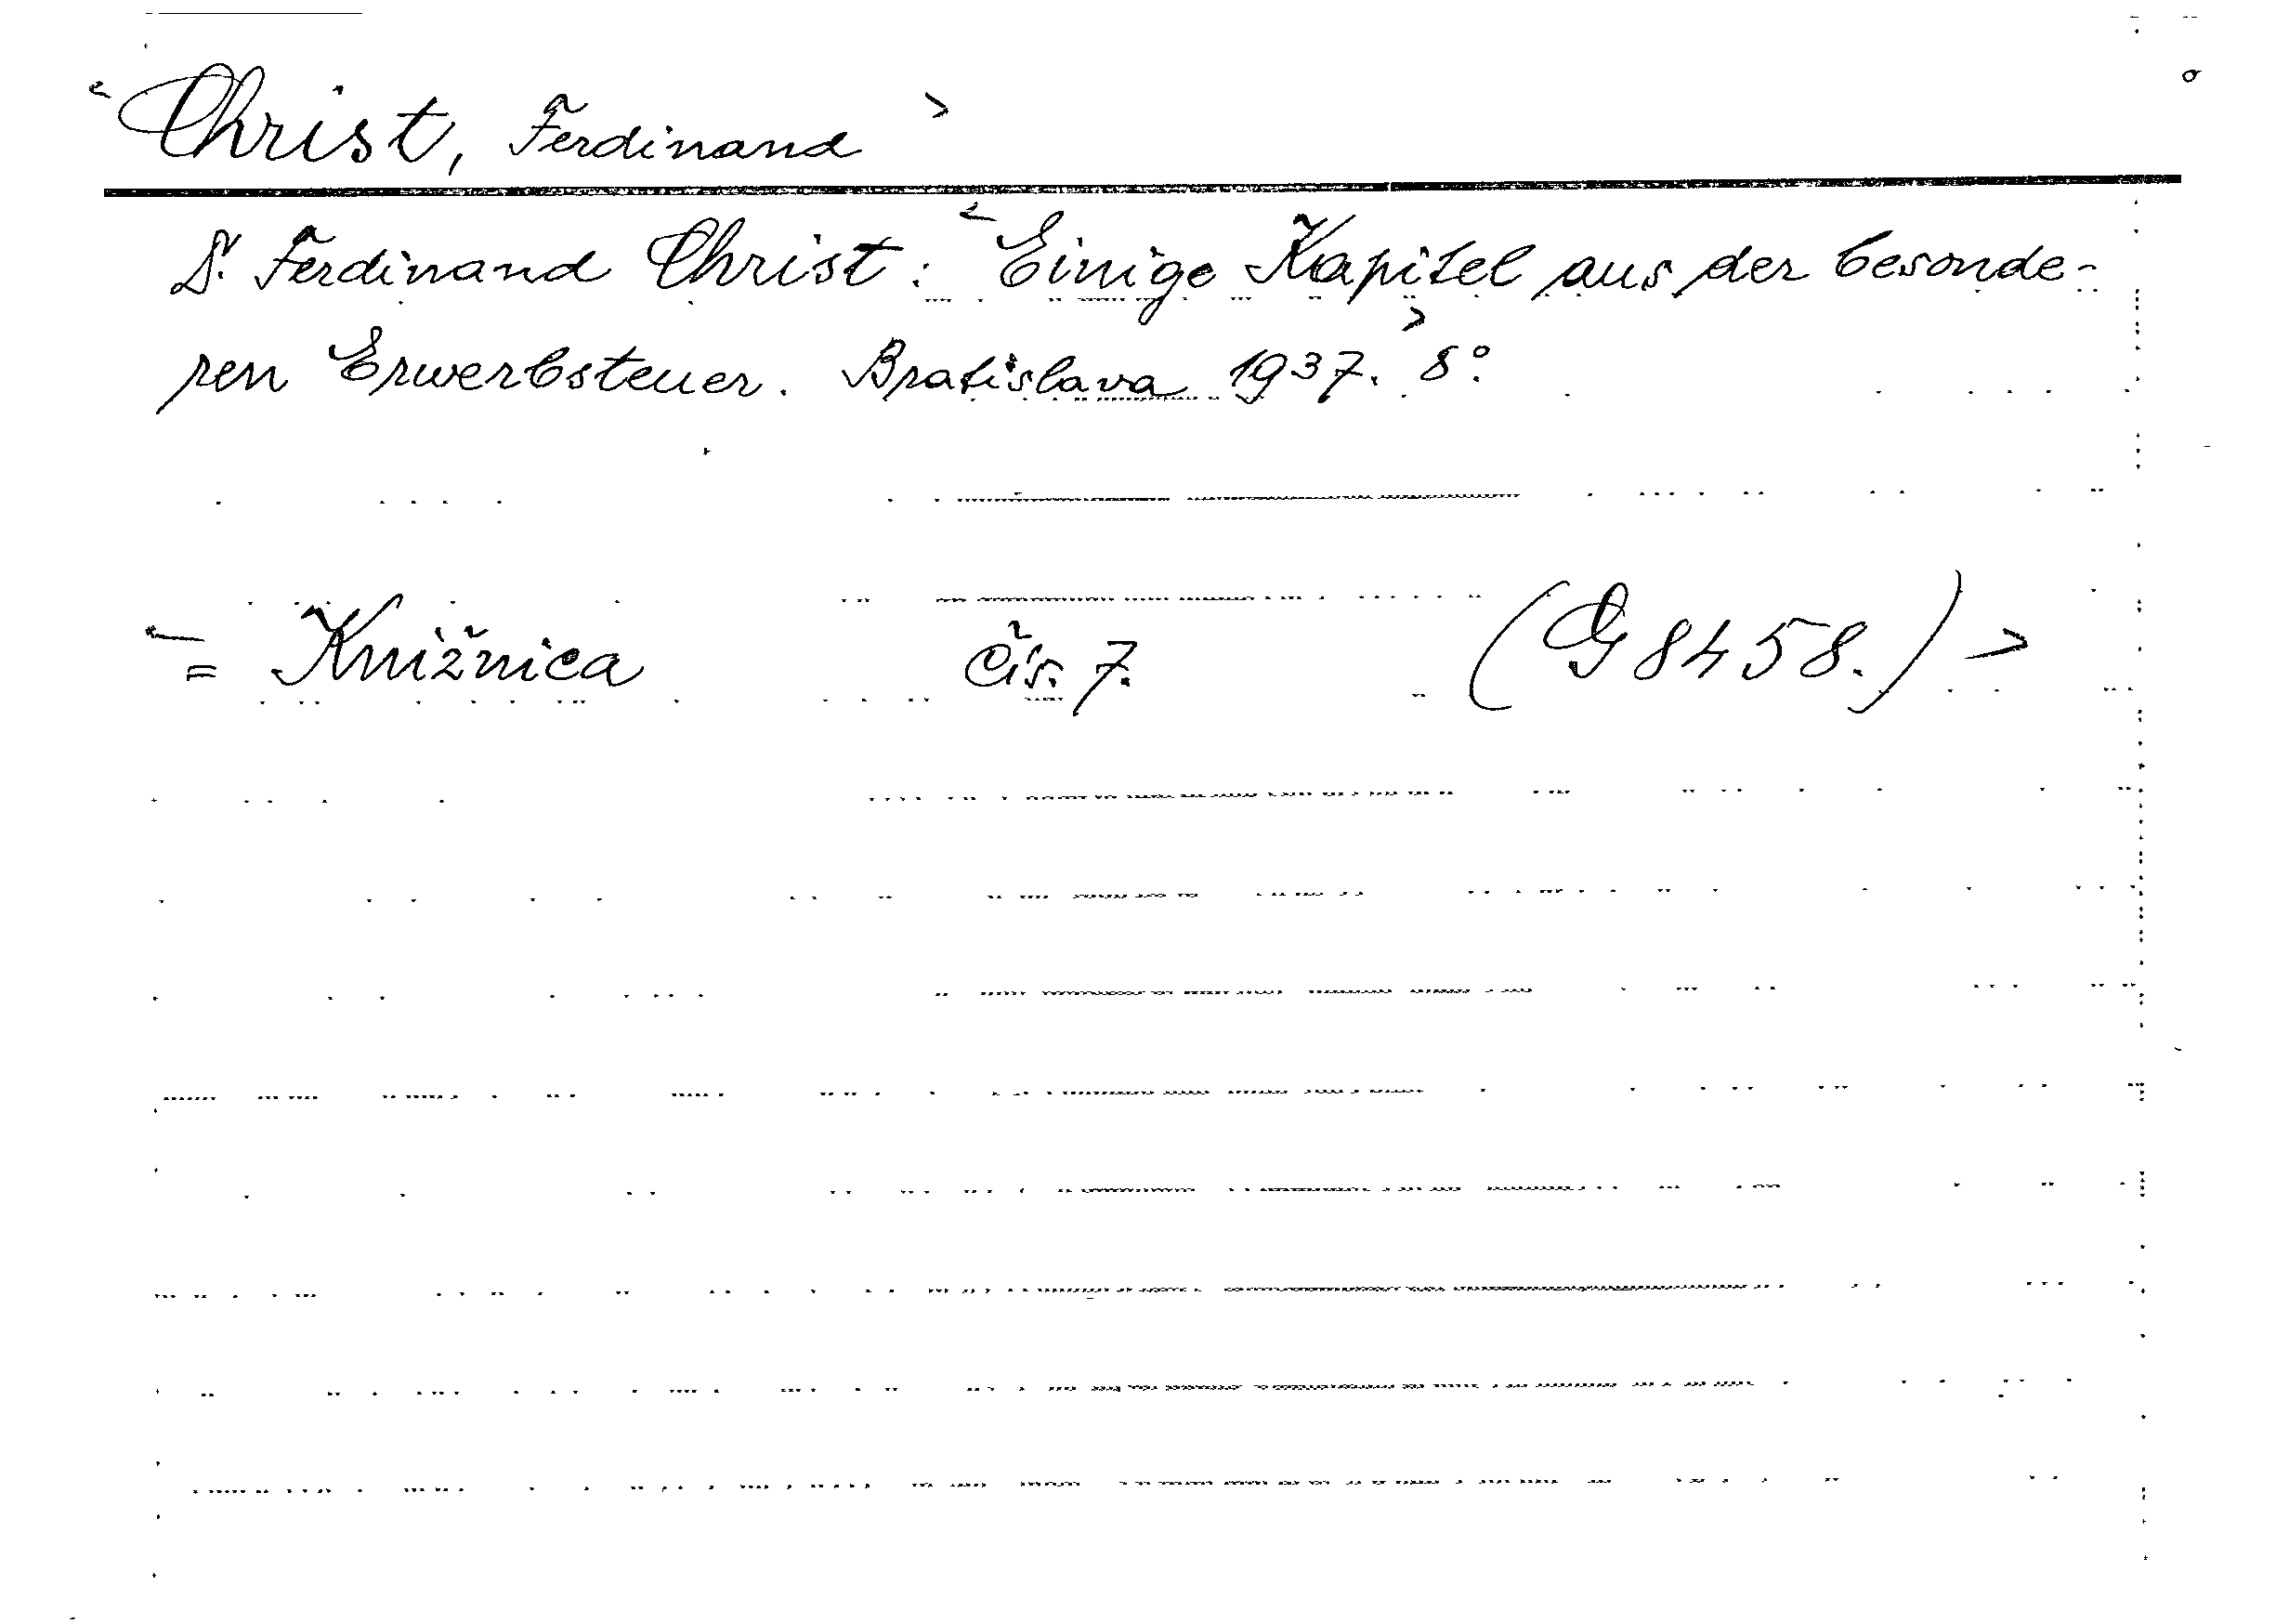 <Christ, Ferdinand>
Dr. Ferdinand Christ: <Einige Kapitel aus der besonde-
ren Erwerbsteuer. Bratislava 1937.> 8°.
<= Knižnica čís. 7. (G 8458.)>